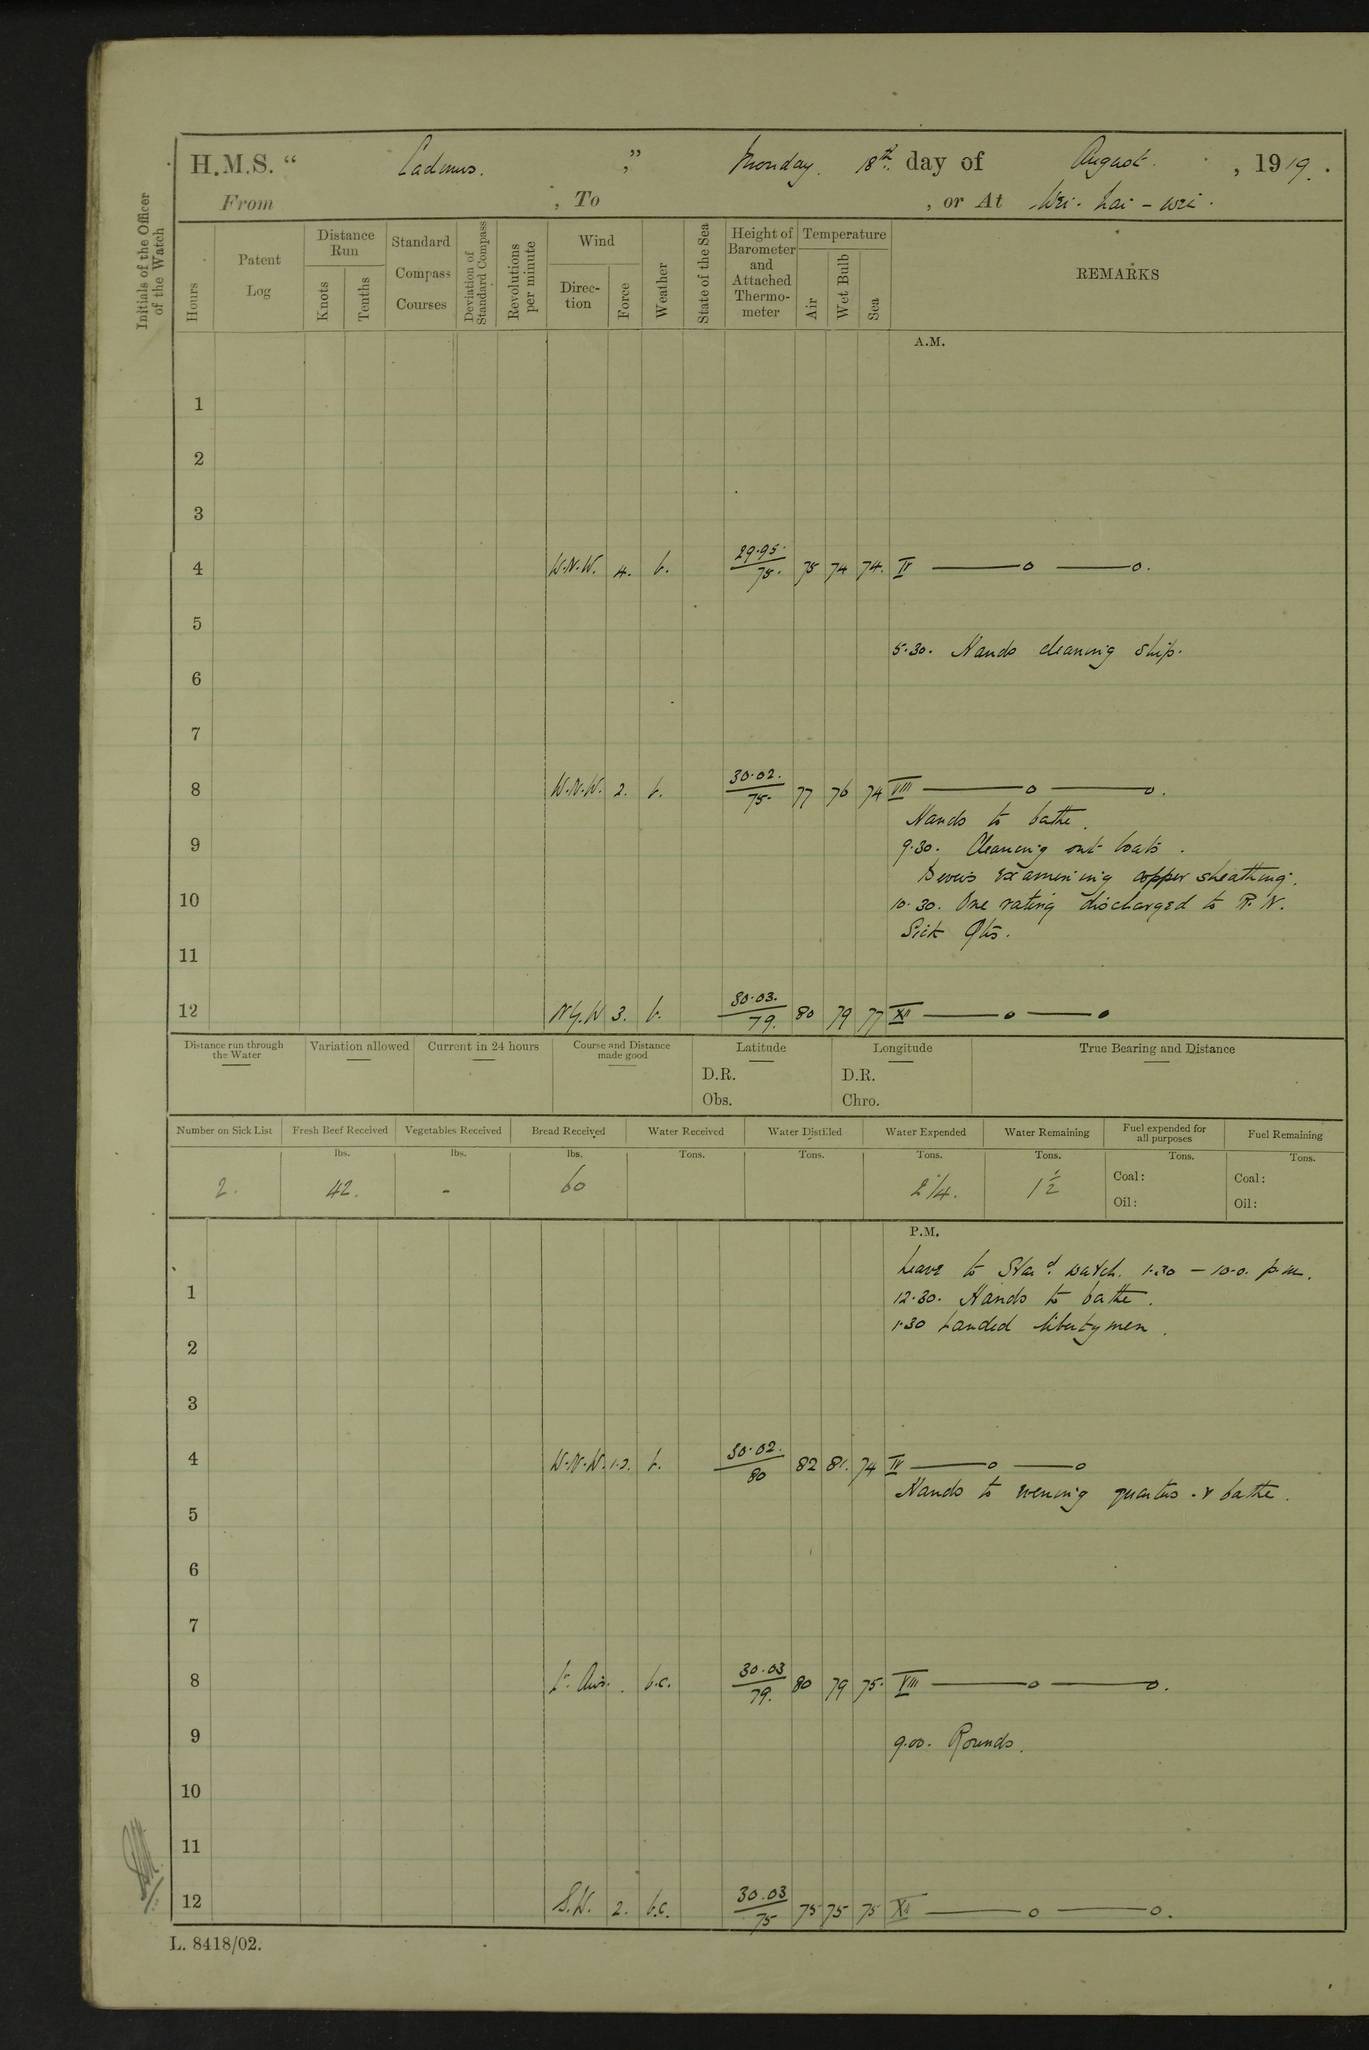 H.M.S. “ Cadmus. ” Monday. 18th. day of August. , 1919.
From , To , or At Wei-hai-wei.
Initials of the Officer of the Watch
Hours
Patent Log
Distance Run
Knots
Tenths
Standard Compass Courses
Deviation of Standard Compass
Revolutions per minute
Wind
Direction
Force
Weather
State of the Sea
Height of Barometer and Attached Thermometer
Temperature
Air
Wet Bulb
Sea
REMARKS
A.M.
1
2
3
4 W.N.W. 4. b. 29.95. 75. 75 74 74. IV ——o ——o.
5
5.30. Hands cleaning ship.
6
7
8 W.N.W. 2. b. 30.02. 75. 77 76 74 VIII ——o ——o.
Hands to bathe.
9 9.30. Cleaning out boats.
Divers examining copper sheathing.
10 10.30. One rating discharged to R.N.
Sick Qtrs.
11
12 N.y.W 3. b. 30.03. 79. 80 79 77 XII ——o ——o
Distance run through the Water
Variation allowed
Current in 24 hours
Course and Distance made good
Latitude
D.R.
Obs.
Longitude
D.R.
Chro.
True Bearing and Distance
Number on Sick List
2.
Fresh Beef Received
lbs.
42.
Vegetables Received
lbs.
-
Bread Received
lbs.
60
Water Received
Tons.
Water Distilled
Tons.
Water Expended
Tons.
2 1/4.
Water Remaining
Tons.
1 1/2
Fuel expended for all purposes
Tons.
Coal:
Oil:
Fuel Remaining
Tons.
Coal:
Oil:
P.M.
Leave to Stard. watch. 1.30 – 10.0. p.m.
1 12.30. Hands to bathe.
1.30 Landed libertymen.
2
3
4 W.N.W. 1-2. b. 30.02. 80 82 81. 74 IV ——o ——o
Hands to evening quarters & bathe.
5
6
7
8 Lt. Airs. b.c. 30.03 79. 80 79 75. VIII ——o ——o.
9 9.00. Rounds.
10
11
12 S.W. 2. b.c. 30.03 75 75 75 75 XII ——o ——o.
L. 8418/02.